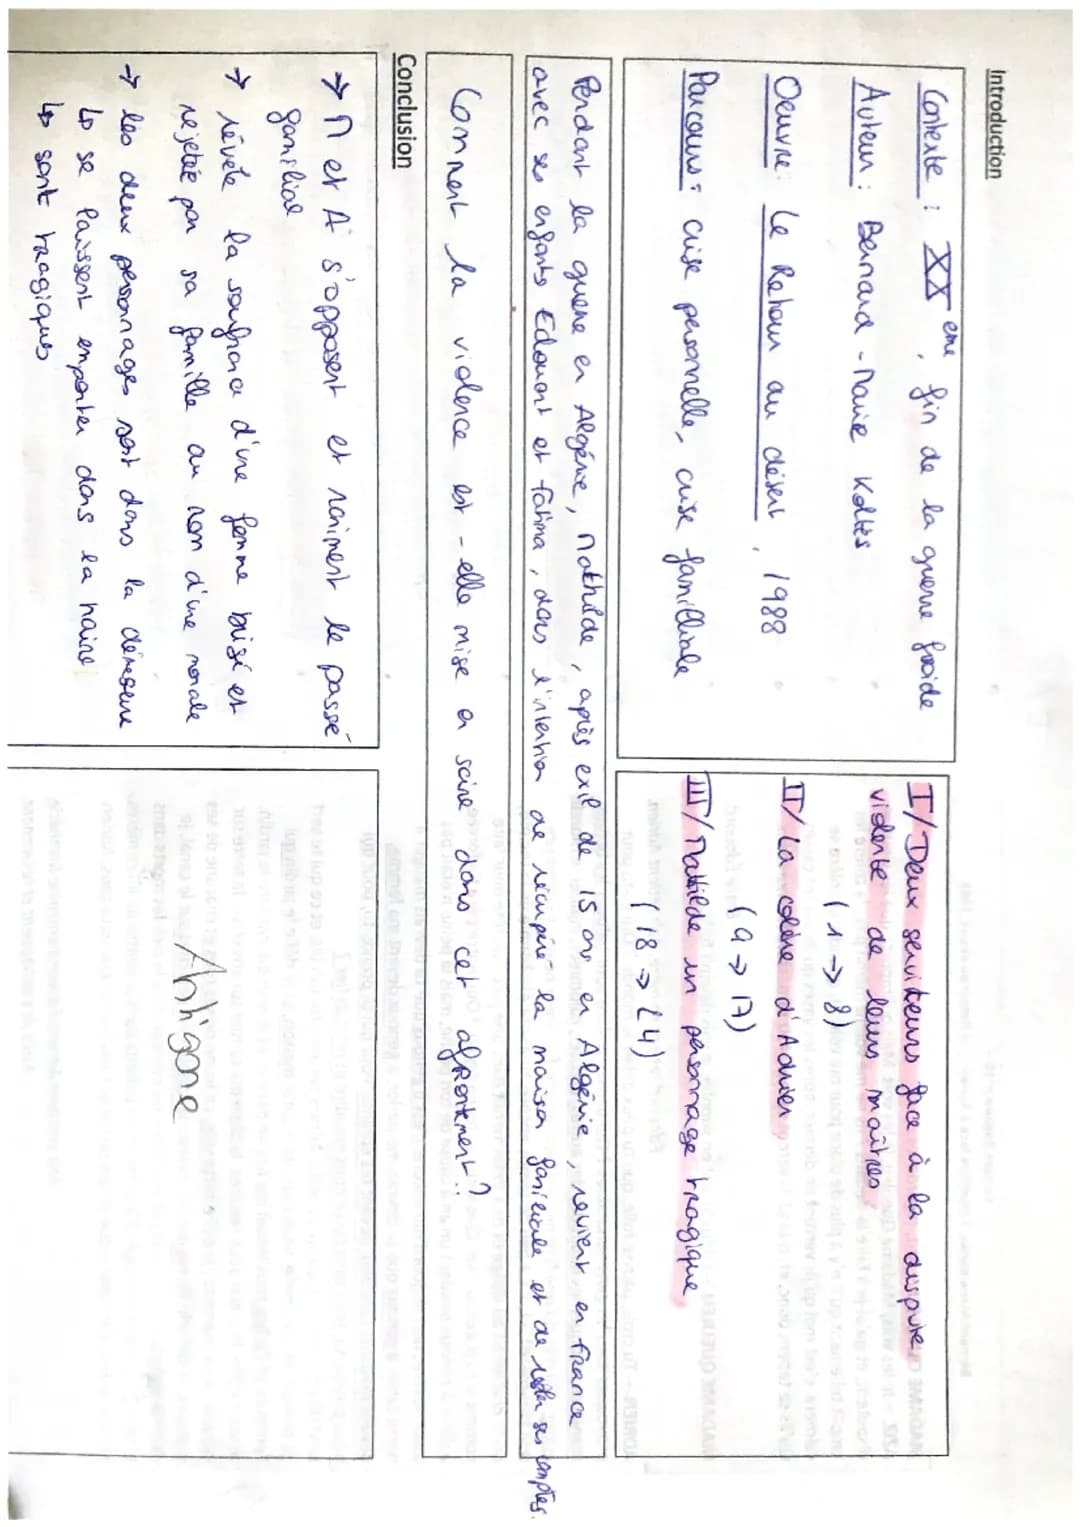 Introduction
Contexte : XXeme, fin de la guerre froide
Auteur : Bernard-Marie Koltès
Oeuvre : Le Retour au désert, 1988
Parcours : crise personnelle, crise familliale
I/ Deux serviteurs face à la dispute
vidente de leurs maîtres
(1 → 8)
II/ La colère d'Adrien
(9 → 17)
III/ Mathilde un personnage tragique
(18 → 24)
Pendant la guerre en Algérie, Mathilde, après exil de 15 ans en Algérie, revient en France
avec ses enfants Edouard et Fatima, dans l'intention de récupéré la maison familiale et de régler ses comptes.
Comment la violence est-elle mise en scène dans cet affrontement ?
Conclusion
→ M et A s'opposent et raniment le passé
familial
→ révèle la soufrance d'une femme brisé et
rejetée par sa famille au nom d'une morale
→ les deux personnages sont dans la démesure
↳ se laissent emporter dans la haine
↳ sont tragiques
Antigone